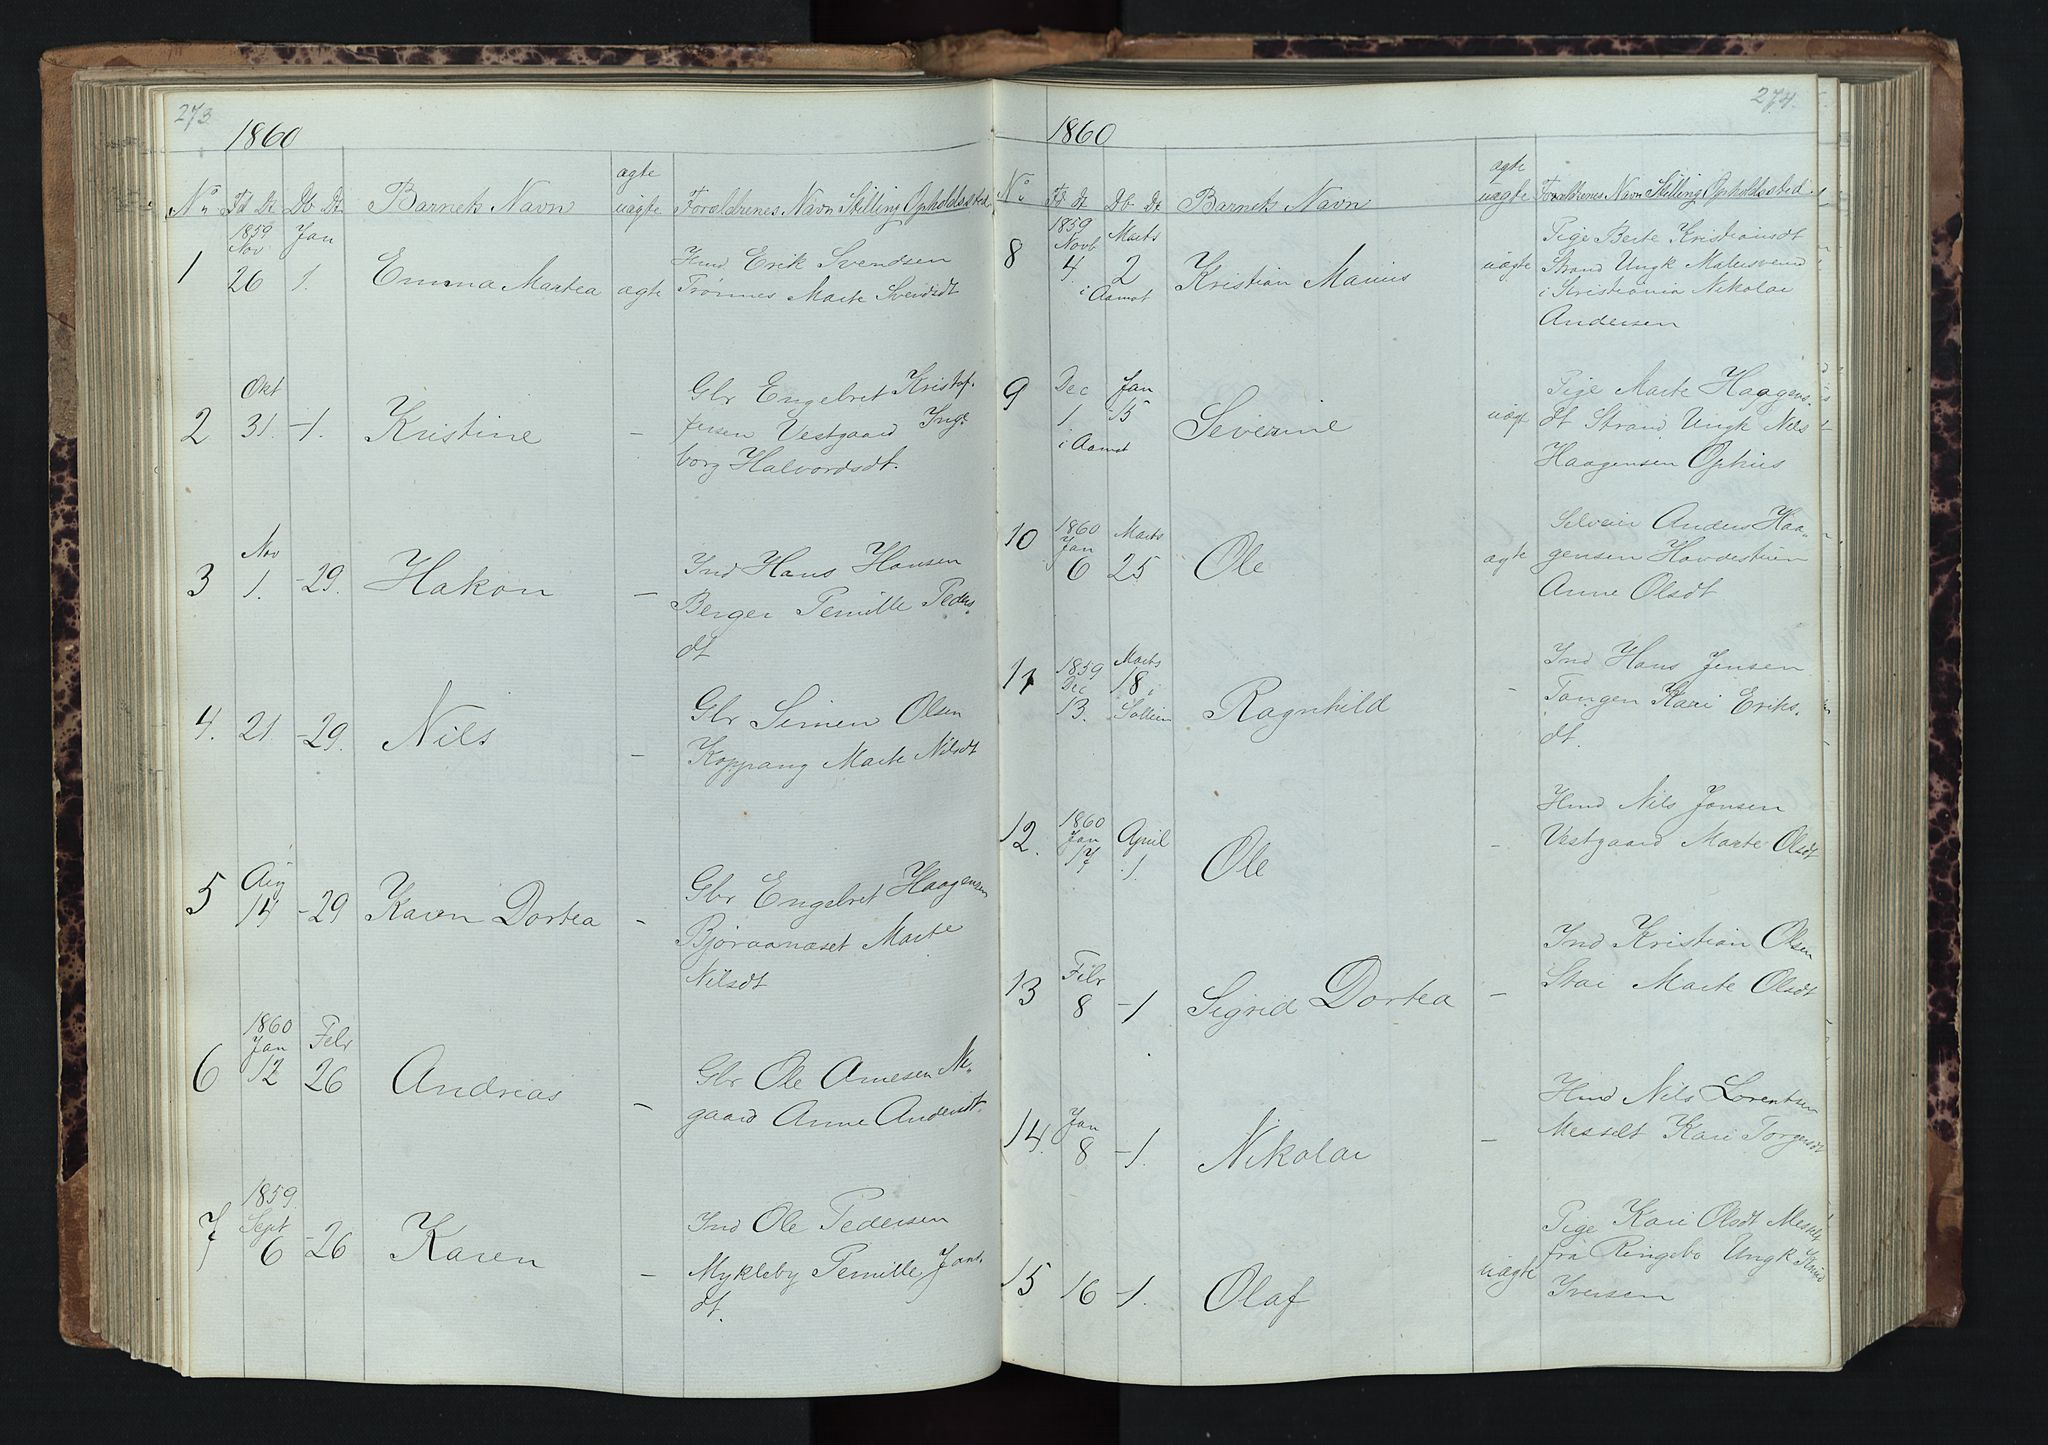 273
1860
ægte
No Fd Dt Db Dt Barnets Navn uægte Forældrenes Navn Stilling Opholdssted
1859 Jan
Nov
1 26 1. Emma Martea ægte Hmd Erik Svendsen
Trønnes Marte Svendsdt
Okt
2 31. -1. Kristine - Gbr Engebret Kristof-
fersen Vestgaard Inge
borg Halvordsdt.
Nov
3 1. -29. Hakon - Ind Hans Hansen
Berger Pernille Peders-
dt
4. 21 -29. Nils - Gbr Simen Olsen
Koppang Marte Nilsdt
Aug
5 14 -29 Karen Dortea - Gbr Engebret Haagensen
Bjøraanæset Marte
Nilsdt
1860
Jan Febr
6 12 26 Andreas - Gbr Ole Arnesen Ne-
gaard Anne Andersdt.
1859
Sept
7 6 -26 Karen - Ind Ole Pedersen
Mykleby Pernille Jons-
dt.
274.
1860
ægte
No Fd Dt Db Dt Barnets Navn uægte Forældrenes Navn Stilling Opholdssted
1859 Marts
Novb
8 4. 2 Kristian Marius uægte Pige Berte Kristiansdt
i Aamot
Strand Ungk Malersvend
i Kristiania Nikolai
Andersen
Dec Jan
9 1. 15 Severine uægt Pige Marte Haagens-
i Aamot
dt Strand Ungk Nils
Haagensen Ophus
1860 Marts
Jan
10 6 25 Ole ægte Selveier Anders Haa-
gensen Hovdestuen
Anne Olsdt
1859 Marts
Dec 18 i
11 13. Sollien Ragnhild - Ind Hans Jensen
Tangen Kari Eriks-
dt.
1860 April
Jan
12. 17 1. Ole - Hmd Nils Jonsen
Vestgaard Marte Olsdt
Febr
13 8 -1 Sigrid Dortea - Ind Kristian Olsen
Stai Marte Olsdt
Jan
14. 8 -1. Nikolai - Hmd Nils Lorentsen
Messelt Kari Torgersdt
15 16 -1. Olaf uægte Pige Kari Olsdt Messelt
fra Ringebo Ungk Knud
Iversen